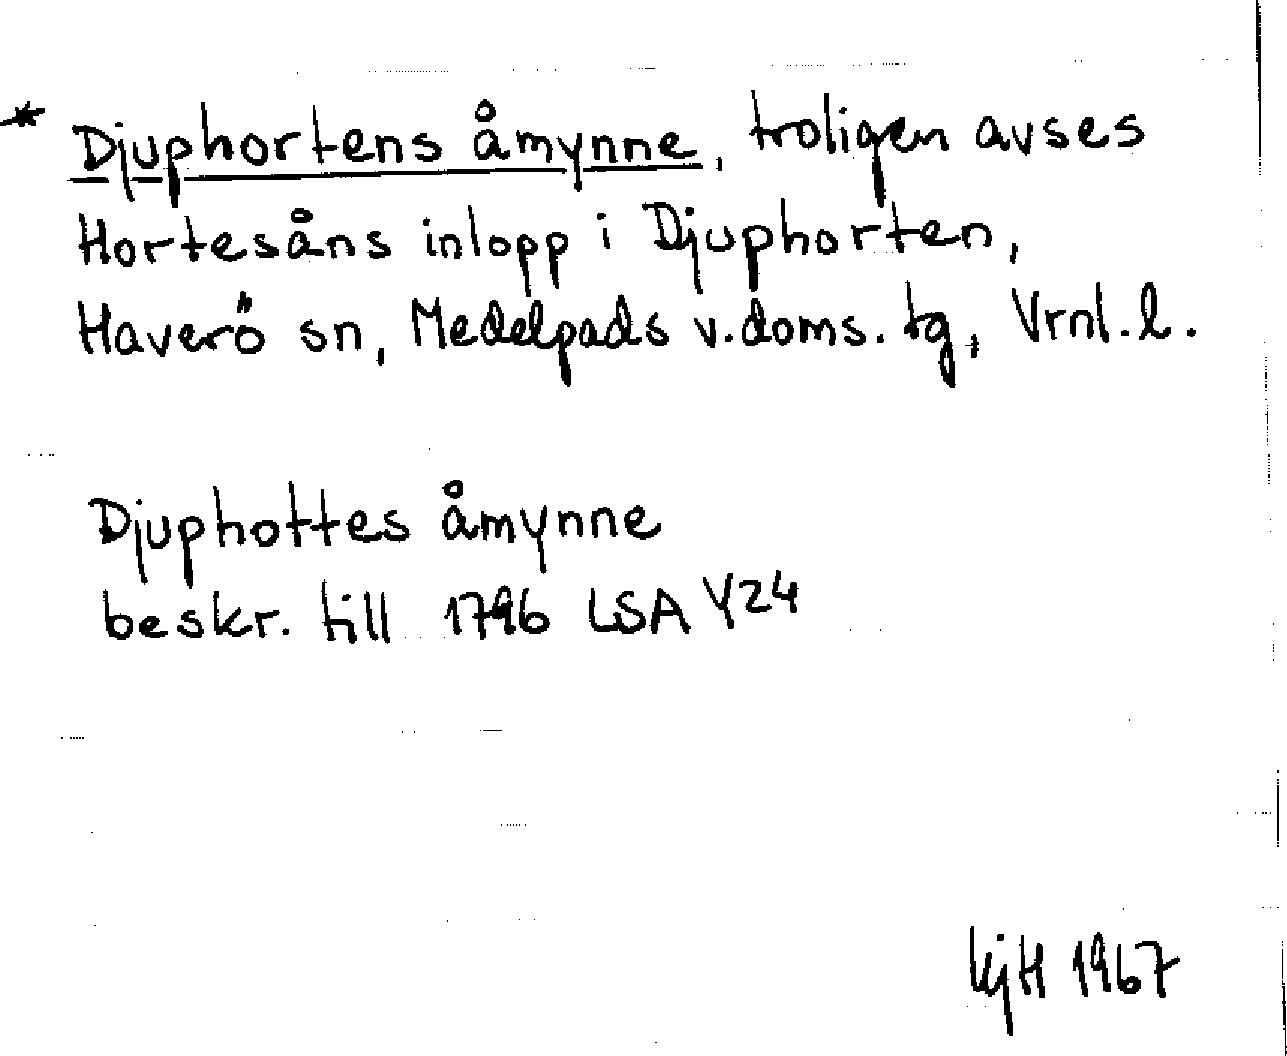 * Djuphortens åmynne, troligen avses
Hortesåns inlopp i Djuphorten,
Haverö sn, Medelpads v. doms. tg, Vrnl. l.
Djuphottes åmynne
beskr. till 1796 LSA Y24
KjH 1967